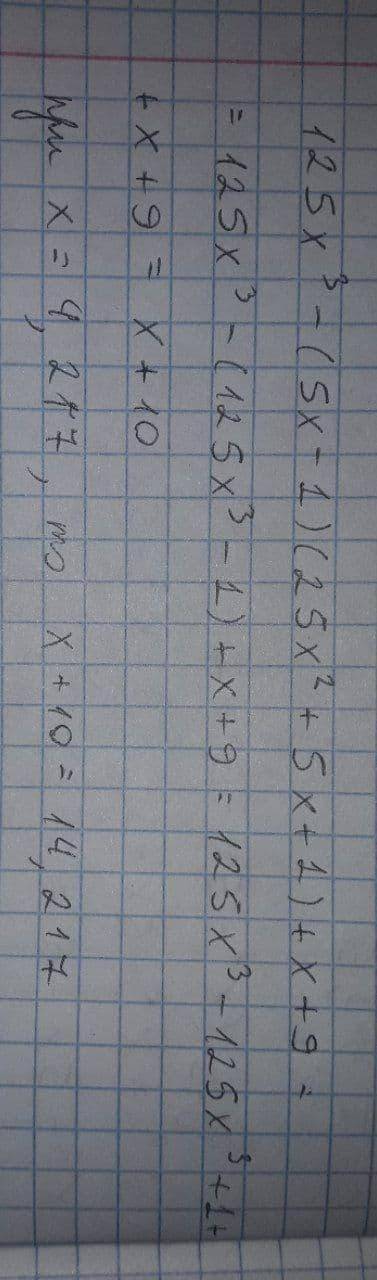 125x³ - (5x - 1)(25x² + 5x + 1) + x + 9 =
= 125x³ - (125x³ - 1) + x + 9 = 125x³ - 125x³ + 1 +
+ x + 9 = x + 10
при x = 4,217, то x + 10 = 14,217